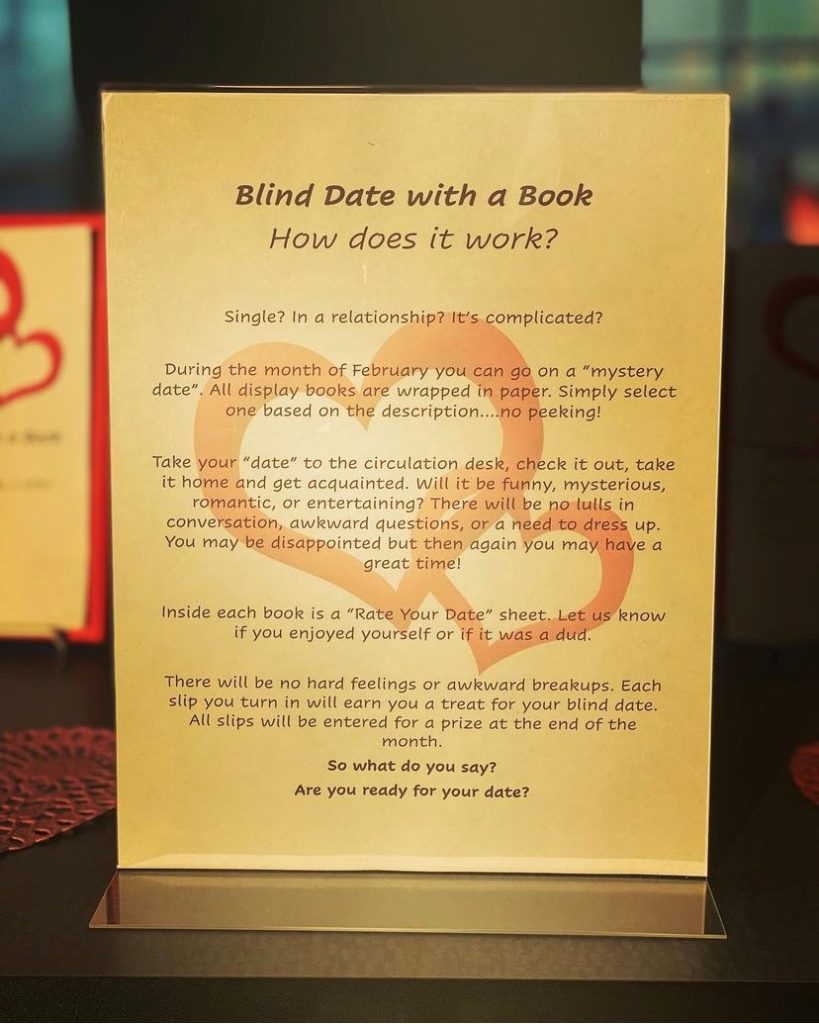 Blind Date with a Book
How does it work?
Single? In a relationship? It's complicated?
During the month of February you can go on a “mystery
date”. All display books are wrapped in paper. Simply select
one based on the description....no peeking!
Take your “date” to the circulation desk, check it out, take
it home and get acquainted. Will it be funny, mysterious,
romantic, or entertaining? There will be no lulls in
conversation, awkward questions, or a need to dress up.
You may be disappointed but then again you may have a
great time!
Inside each book is a “Rate Your Date” sheet. Let us know
if you enjoyed yourself or if it was a dud.
There will be no hard feelings or awkward breakups. Each
slip you turn in will earn you a treat for your blind date.
All slips will be entered for a prize at the end of the
month.
So what do you say?
Are you ready for your date?
a Book